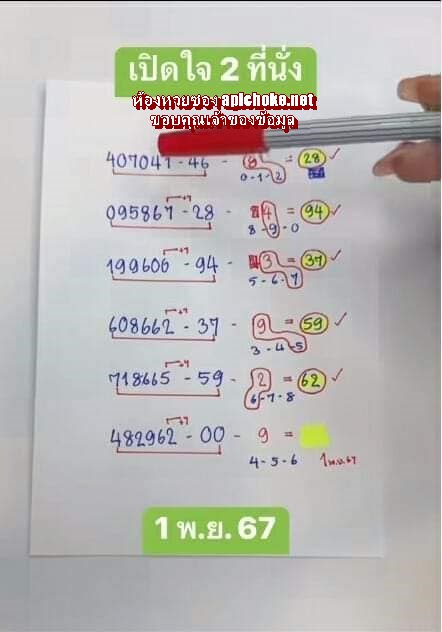 เปิดใจ 2 ที่นั่ง
ห้องหวยซอง apichoke.net
ขอบคุณเจ้าของข้อมูล
407041 - 46 - 8 = 28 ✓
0-1-2
+7
095867 - 28 - 4 = 94 ✓
8-9-0
+7
199606 - 94 - 3 = 37 ✓
5-6-7
+7
608662 - 37 - 9 = 59 ✓
3-4-5
+7
718665 - 59 - 2 = 62 ✓
6-7-8
+7
482962 - 00 - 9 =
4-5-6 1 พ.ย. 67
1 พ.ย. 67